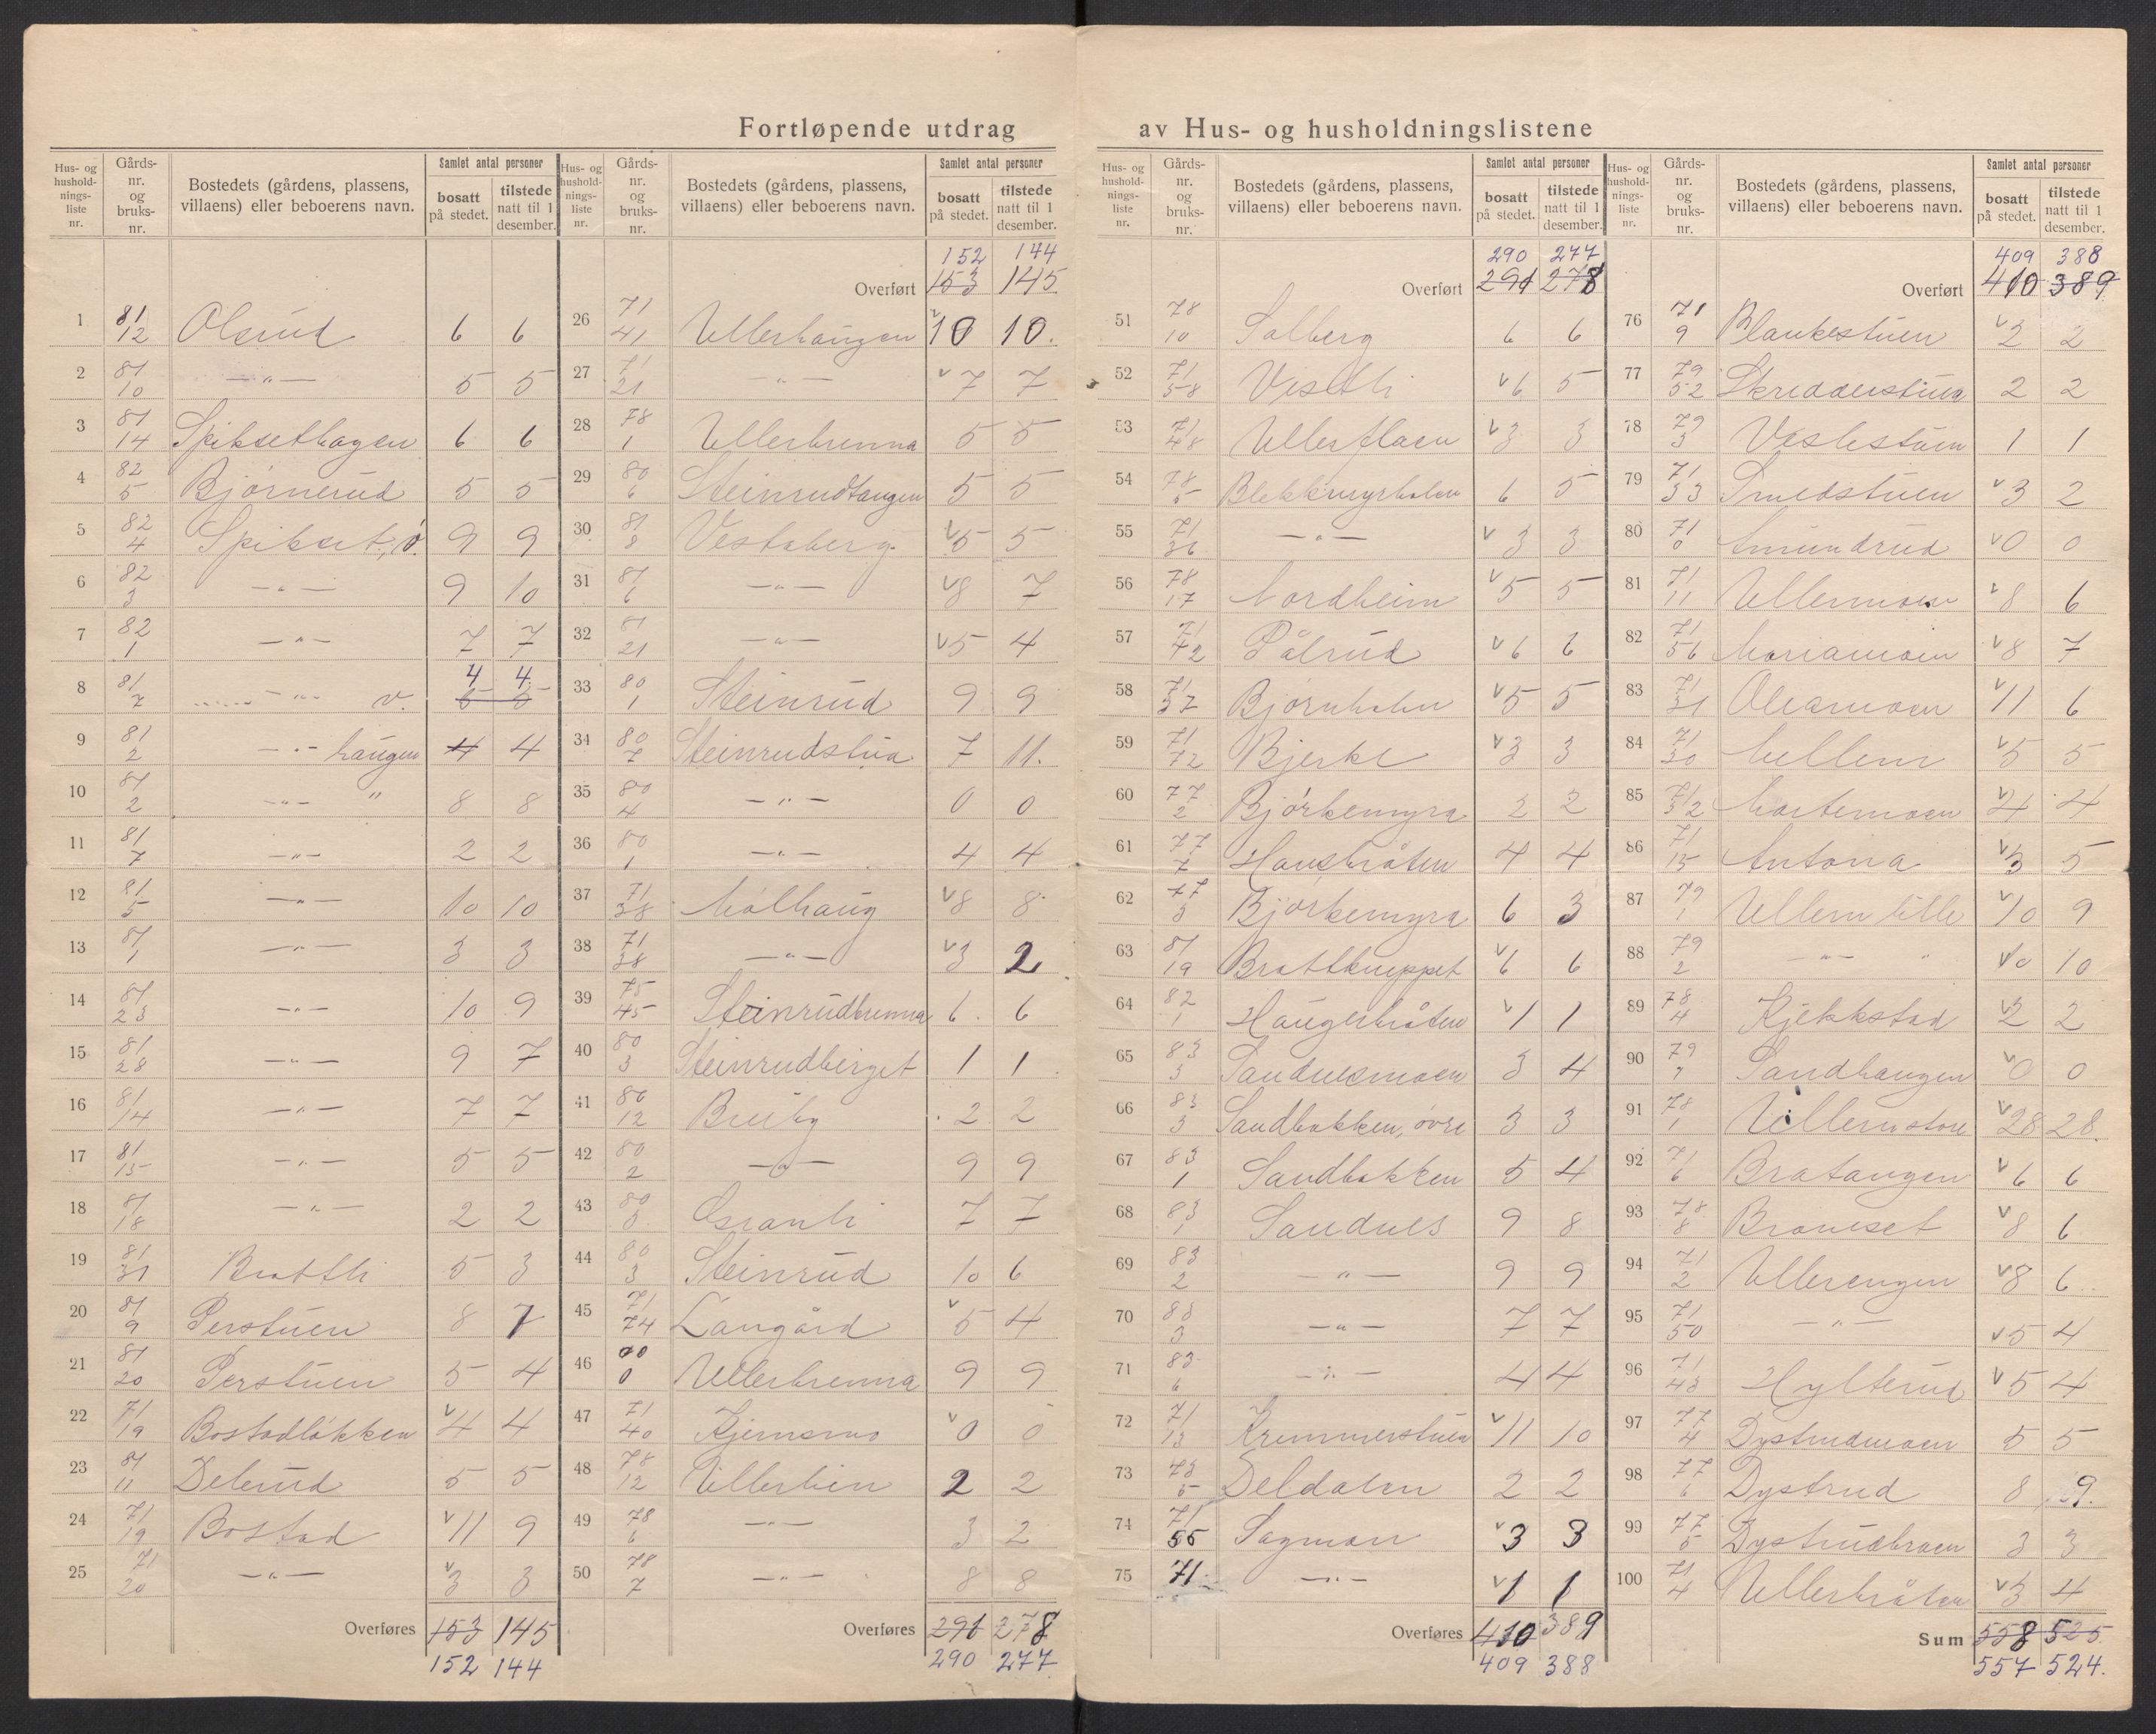 Fortløpende utdrag av Hus- og husholdningslistene
Hus- og husholdnings-liste nr. | Gårds-nr. og bruks-nr. | Bostedets (gårdens, plassens, villaens) eller beboerens navn. | Samlet antal personer bosatt på stedet. | tilstede natt til 1 desember.
1 81/12 Olsrud 6 6
2 81/10 —„— 5 5
3 81/14 Spiksethagen 6 6
4 82/5 Bjørnerud 5 5
5 82/4 Spikset, ø. 9 9
6 82/3 —„— 9 10
7 82/1 —„— 7 7
8 81/7 —„— v. 5 5 4 4
9 81/2 —„— haugen 4 4
10 81/2 —„— „ 8 8
11 81/7 —„— 2 2
12 81/5 —„— 10 10
13 81/1 —„— 3 3
14 81/23 —„— 10 9
15 81/28 —„— 9 7
16 81/14 —„— 7 7
17 81/15 —„— 5 5
18 81/18 —„— 2 2
19 81/31 Brattli 5 3
20 81/9 Perstuen 8 7
21 81/20 Perstuen 5 4
22 71/19 Bostadløkken v 4 4
23 81/11 Delerud 5 5
24 71/19 Bostad v 11 9
25 71/20 —„— v 3 3
Overføres 153 145
152 144
Hus- og husholdnings-liste nr. | Gårds-nr. og bruks-nr. | Bostedets (gårdens, plassens, villaens) eller beboerens navn. | Samlet antal personer bosatt på stedet. | tilstede natt til 1 desember.
152 144
Overført 153 145
26 71/41 Ullerhaugen v 10 10.
27 71/21 —„— v 7 7
28 78/1 Ullerbrenna 5 5
29 80/6 Steinrudtangen 5 5
30 81/8 Vestaberg v 5 5
31 81/6 —„— v 8 7
32 81/21 —„— v 5 4
33 80/1 Steinrud 9 9
34 80/7 Steinrudstua 7 11.
35 80/4 —„— 0 0
36 80/1 —„— 4 4
37 71/38 Mølhaug v 8 8
38 71/38 —„— v 3 2
39 75/45 Steinrudbrenna 6 6
40 80/3 Steinrudberget 1 1
41 80/12 2 2
42 80/2 —„— 9 9
43 80/5 Granli 7 7
44 80/3 Steinrud 10 6
45 71/74 Langård v 5 4
46 00/0 Ullerbrenna 9 9
47 71/40 Kjernsmo v 0 0
48 78/12 Ullerlien 2 2
49 78/6 —„— 3 2
50 78/7 —„— 8 8
Overføres 291 278
290 277
Hus- og husholdnings-liste nr. | Gårds-nr. og bruks-nr. | Bostedets (gårdens, plassens, villaens) eller beboerens navn. | Samlet antal personer bosatt på stedet. | tilstede natt til 1 desember.
290 277
Overført 291 278
51 78/10 Solberg 6 6
52 71/58 Vestli v 6 5
53 71/48 Ullerflaen v 3 3
54 78/5 Blekkmyrholen 6 5
55 71/36 —„— v 3 3
56 78/17 Nordheim v 5 5
57 71/42 Pålrud v 6 6
58 71/37 Bjørnholen v 5 5
59 71/72 Bjerke v 3 3
60 77/2 Bjørkemyra 2 2
61 77/7 Hansbråten 4 4
62 77/3 Bjørkemyra 6 3
63 81/19 Brattkneppet v 6 6
64 82/1 Haugerbråten v 1 1
65 83/3 Sandnesmoen 3 4
66 83/3 Sandbakken, øvre 3 3
67 83/1 Sandbakken 5 4
68 83/1 Sandnes 9 8
69 83/2 —„— 9 9
70 83/3 —„— 7 7
71 83/6 —„— 4 4
72 71/13 Kremmerstuen v 11 10
73 78/5 Deldalen 2 2
74 71/55 Sagmoen v 3 3
75 71 —„— v 1 1
Overføres 410 389
409 388
Hus- og husholdnings-liste nr. | Gårds-nr. og bruks-nr. | Bostedets (gårdens, plassens, villaens) eller beboerens navn. | Samlet antal personer bosatt på stedet. | tilstede natt til 1 desember.
409 388
Overført 410 389
76 71/9 Blankestuen v 2 2
77 79/52 Skredderstuen 2 2
78 79/3 Veslestuen 1 1
79 71/33 Smedstuen v 3 2
80 71/0 Amundrud v 0 0
81 71/11 Ullermoen v 8 6
82 71/56 Mariamoen v 8 7
83 71/31 Oleamoen v 11 6
84 71/30 v 5 5
85 71/32 Martemoen v 4 4
86 71/15 Antona v 3 5
87 79/1 Ullern lille v 10 9
88 79/2 —„— „ v 10 10
89 78/4 Kjekkstad v 2 2
90 79/7 Sandhaugen v 0 0
91 78/1 Ullern store v 28 28.
92 71/6 Bratangen v 6 6
93 78/8 Braneset v 8 6
94 71/2 Ullerengen v 8 6
95 71/50 —„— v 5 4
96 71/43 Hylterud v 5 4
97 77/4 Dystrudmoen 5 5
98 77/1 Dystrud 8 9.
99 77/5 Dystrudbraen 3 3
100 71/4 Ullerbråten v 3 4
Sum 558 525
557 524.